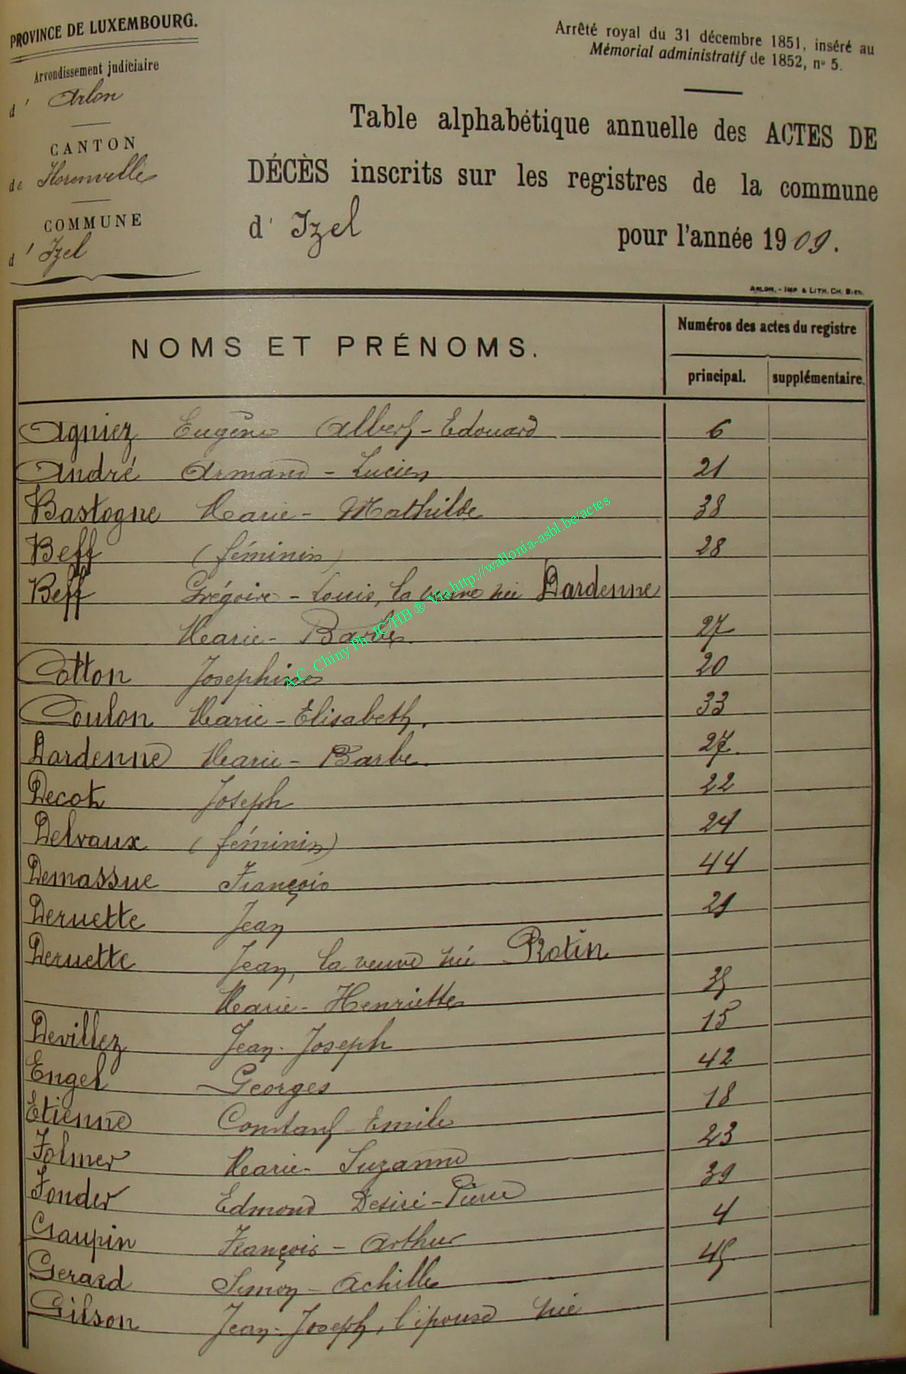 PROVINCE DE LUXEMBOURG.
Arrondissement judiciaire
d' Arlon
CANTON
de Florenville
COMMUNE
d' Izel
Arrêté royal du 31 décembre 1851, inséré au
Mémorial administratif de 1852, n° 5.
Table alphabétique annuelle des ACTES DE
DÉCÈS inscrits sur les registres de la commune
d' Izel pour l'année 1909.
ARLON. - IMP & LITH. CH.
NOMS ET PRÉNOMS. Numéros des actes du registre
principal. supplémentaire.
Agniez Eugène Albert-Edouard 6
André Armand-Lucien 21
Bastogne Marie-Mathilde 38
Beff (féminin) 28
Beff Grégoire-Louis, la veuve née Dardenne
Marie-Barbe. 27
Cotton Josephine 20
Coulon Marie-Elisabeth. 33
Dardenne Marie-Barbe. 27.
Decot Joseph 22
Delvaux (féminin) 24
Demassue François 44
Deruette Jean
Deruette Jean, la veuve née Rotin
Marie-Henriette
Devillez Jean-Joseph 15
Engel Georges 42
Etienne Constant-Emile 18
Folmer Marie-Suzanne 23
Fonder Edmond Désiré-Pierre 39
Gaupin François-Arthur 4
Gerard Simon-Achille 45
Gilson Jean-Joseph, l'épouse née
A.C. Chiny Ph JC HB ® Via http://wallonia-asbl.be/actes